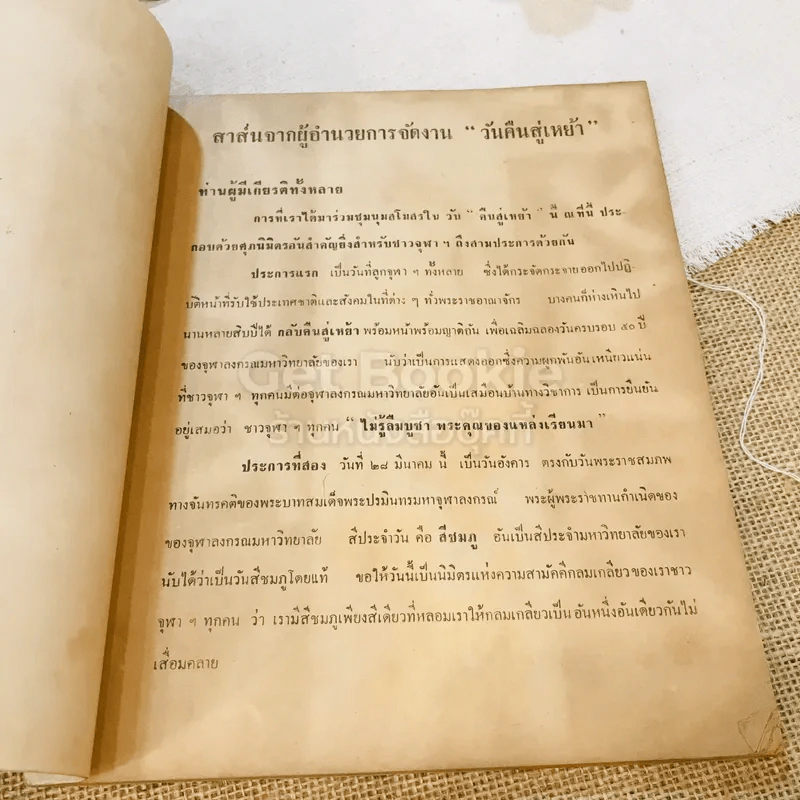 สาส์นจากผู้อำนวยการจัดงาน “ วันคืนสู่เหย้า ”
ท่านผู้มีเกียรติทั้งหลาย
การที่เราได้มาร่วมชุมนุมสโมสรใน วัน “ คืนสู่เหย้า ” นี้ ณ ที่นี้ ประ-
กอบด้วยศุภนิมิตรอันสำคัญยิ่งสำหรับชาวจุฬา ฯ ถึงสามประการด้วยกัน
ประการแรก เป็นวันที่ลูกจุฬา ฯ ทั้งหลาย ซึ่งได้กระจัดกระจายออกไปปฏิ-
บัติหน้าที่รับใช้ประเทศชาติและสังคมในที่ต่าง ๆ ทั่วพระราชอาณาจักร บางคนก็ห่างเหินไป
นานหลายสิบปีได้ กลับคืนสู่เหย้า พร้อมหน้าพร้อมญาติอัน เพื่อเฉลิมฉลองวันครบรอบ ๕๐ ปี
ของจุฬาลงกรณมหาวิทยาลัยของเรา นับว่าเป็นการแสดงออกซึ่งความผูกพันอันเหนียวแน่น
ที่ชาวจุฬา ฯ ทุกคนมีต่อจุฬาลงกรณมหาวิทยาลัยอันเป็นเสมือนบ้านทางวิชาการ เป็นการยืนยัน
อยู่เสมอว่า ชาวจุฬา ฯ ทุกคน “ ไม่รู้ลืมบูชา พระคุณของแหล่งเรียนมา ”
Get Bookie
ร้านหนังสือบุ๊คกี้
ประการที่สอง วันที่ ๒๘ มีนาคม นี้ เป็นวันอังคาร ตรงกับวันพระราชสมภพ
ทางจันทรคติของพระบาทสมเด็จพระปรมินทรมหาจุฬาลงกรณ์ พระผู้พระราชทานกำเนิดของ
ของจุฬาลงกรณมหาวิทยาลัย สีประจำวัน คือ สีชมภู อันเป็นสีประจำมหาวิทยาลัยของเรา
นับได้ว่าเป็นวันสีชมภูโดยแท้ ขอให้วันนี้เป็นนิมิตรแห่งความสามัคคีกลมเกลียวของเราชาว
จุฬา ฯ ทุกคน ว่า เรามีสีชมภูเพียงสีเดียวที่หลอมเราให้กลมเกลียวเป็น อันหนึ่งอันเดียวกันไม่
เสื่อมคลาย